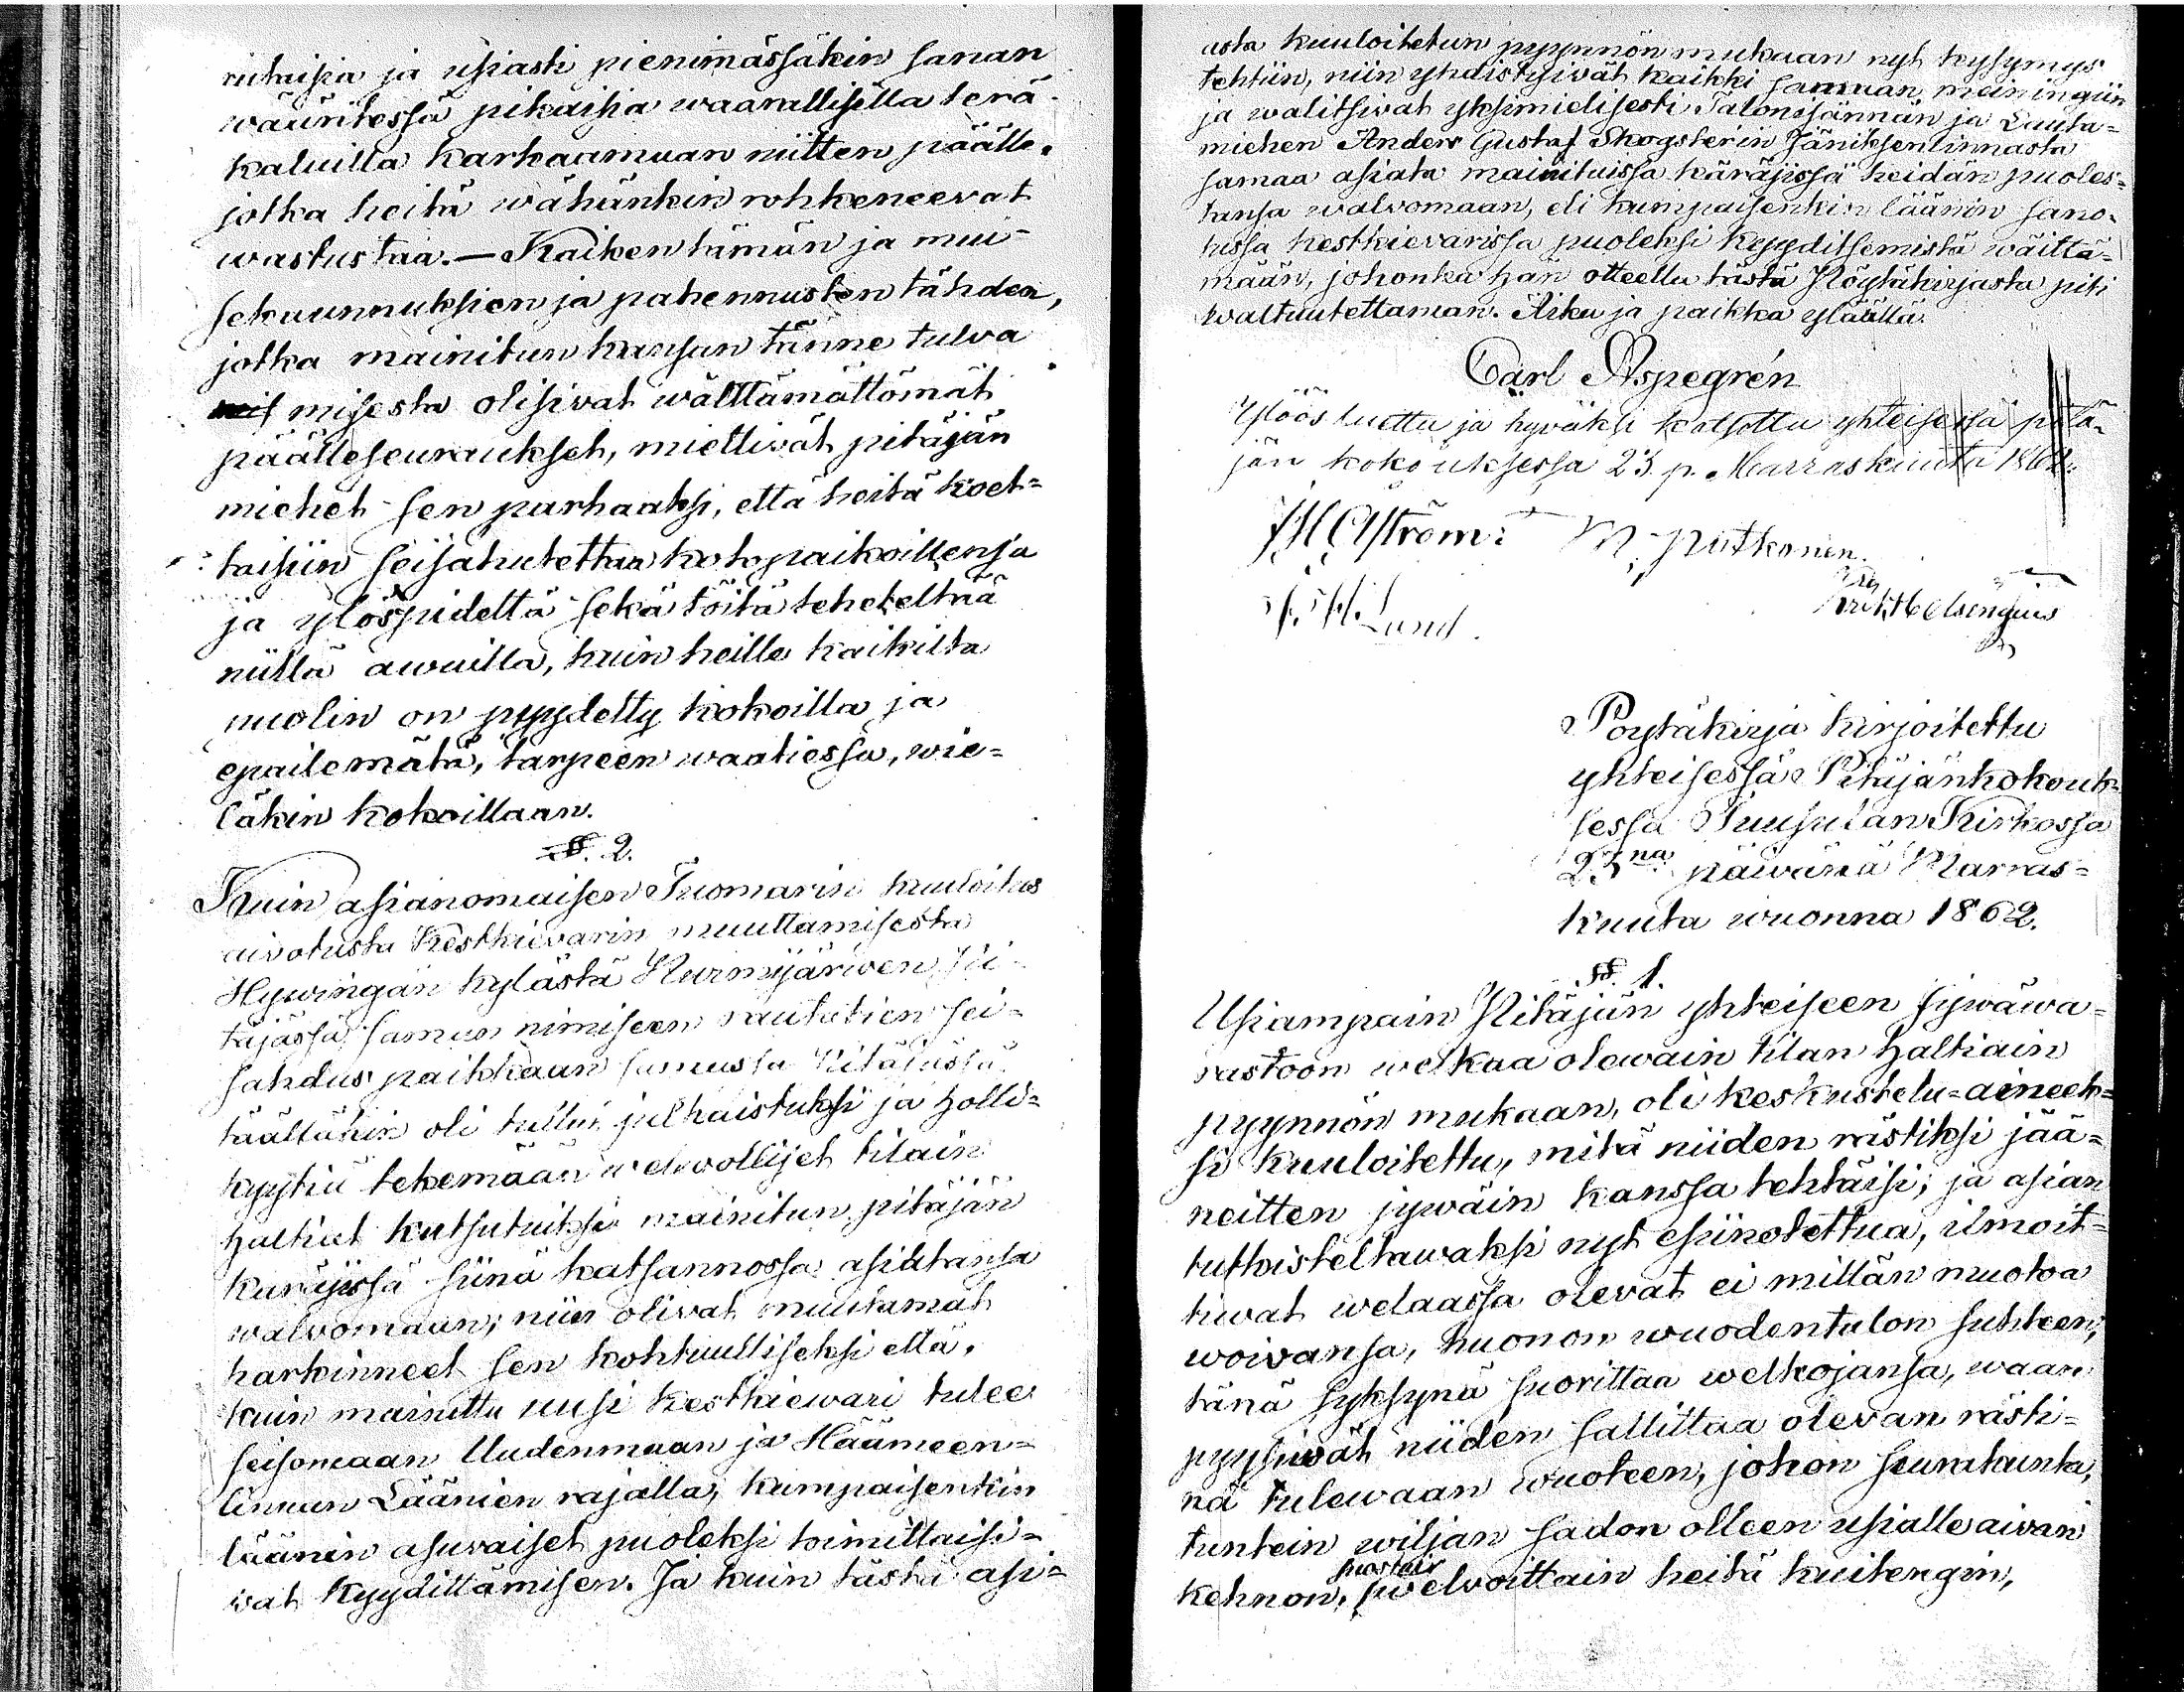 riitaisia ja usiasti pienimässäkin sanan
wäärittessä pikaisia waarallisilla terä
kaluilla karkaamaan niitten päälle,
jotka heitä wähänkin rohkeneevat
wastustaa. — Kaiken tämän ja mui-
sekaannuksien ja pahennusten tähden,
jotka mainitun kansan tänne tulva
misesta olisivat wälttämättömät
päälleseuraukset, miettivät pitäjän
miehet sen parhaaksi, että heitä koet=
taisiin seisahutettaa kotopaikoillensa
ja ylöspidettä sekä töitä teheteltää
niillä awuilla, kuin heille kaikilta
puolin on pyydetty kokoilla ja
epäilemätä, tarpeen waatiessa, wie=
läkin kokoillaan.
§. 2.
Kuin asianomaisen Tuomarin kuuloitus
aivotusta Kestkievarin muuttamisesta
Hywingän kylästä Nurmijärwen Pi-
täjässä saman nimiseen rautatien sei=
sahdus paikkaan samassa Pitäjässä
täältäkin oli tullut julkaistuksi ja Holli=
kyytiä tekemään welvolliset tilain
haltiat kutsutuiksi mainitun pitäjän
käräjissä siinä katsannossa asiatansa
walvomaan; niin olivat muutamat
harkinneet sen kohtuulliseksi että,
kuin mainittu uusi kestkiewari tulee
seisomaan Uudenmaan ja Häämeen=
linnan Läänien rajalla, kumpaisenkin
läänin asuvaiset puoleksi toimittaisi=
vat kyydittämisen. Ja kuin tästä asi=
asta kuuloitetun pyynnön mukaan nyt kysymys
tehtiin, niin yhdistyivät kaikki samaan meiningiin
ja walitsivat yksimielisesti Talonisännän ja Lauta=
miehen Anders Gustaf Skogsterin Jäniksenlinnasta
samaa asiata mainituissa käräjissä heidän puoles=
tansa walvomaan, eli kumpaisenkin läänin sano-
tussa kestkievarissa puoleksi kyyditsemistä wäittä=
mään, johonka hän otteella tästä Pöytäkirjasta piti
waltuutettaman. Aika ja paikka ylläällä.
Carl Aspegrén
Ylöös luettu ja hyväksi katsottu yhteisessä pitä-
jän kokouksessa 23 p. Marraskuuta 1862.
M. Putkonen.
Lund.
Pöytäkirja kirjoitettu
yhteisessä Pitäjänkokouk-
sessa Tuusulan Kirkossa
23na päiwänä Marras=
kuuta wuonna 1862.
§. 1.
Usiampain Pitäjän yhteiseen jywäwa=
rastoon welkaa olewain tilan haltiain
pyynnön mukaan, oli keskustelu=aineek=
si kuuloitettu, mitä niiden rästiksi jää=
neitten jywäin kanssa tehtäisi; ja asian
tutkisteltawaksi nyt esiinotettua, ilmoit=
tivat welaassa olevat ei millän muotoa
woivansa, huonon wuodentulon suhteen,
tänä syksynä suorittaa welkojansa, waan
pyysivät niiden sallittaa olevan rästi=
nä tulewaan wuoteen, johon seurakunta,
tuntein wiljan sadon olleen usialle aivan
kehnon, suostui welvoittain heitä kuitengin,